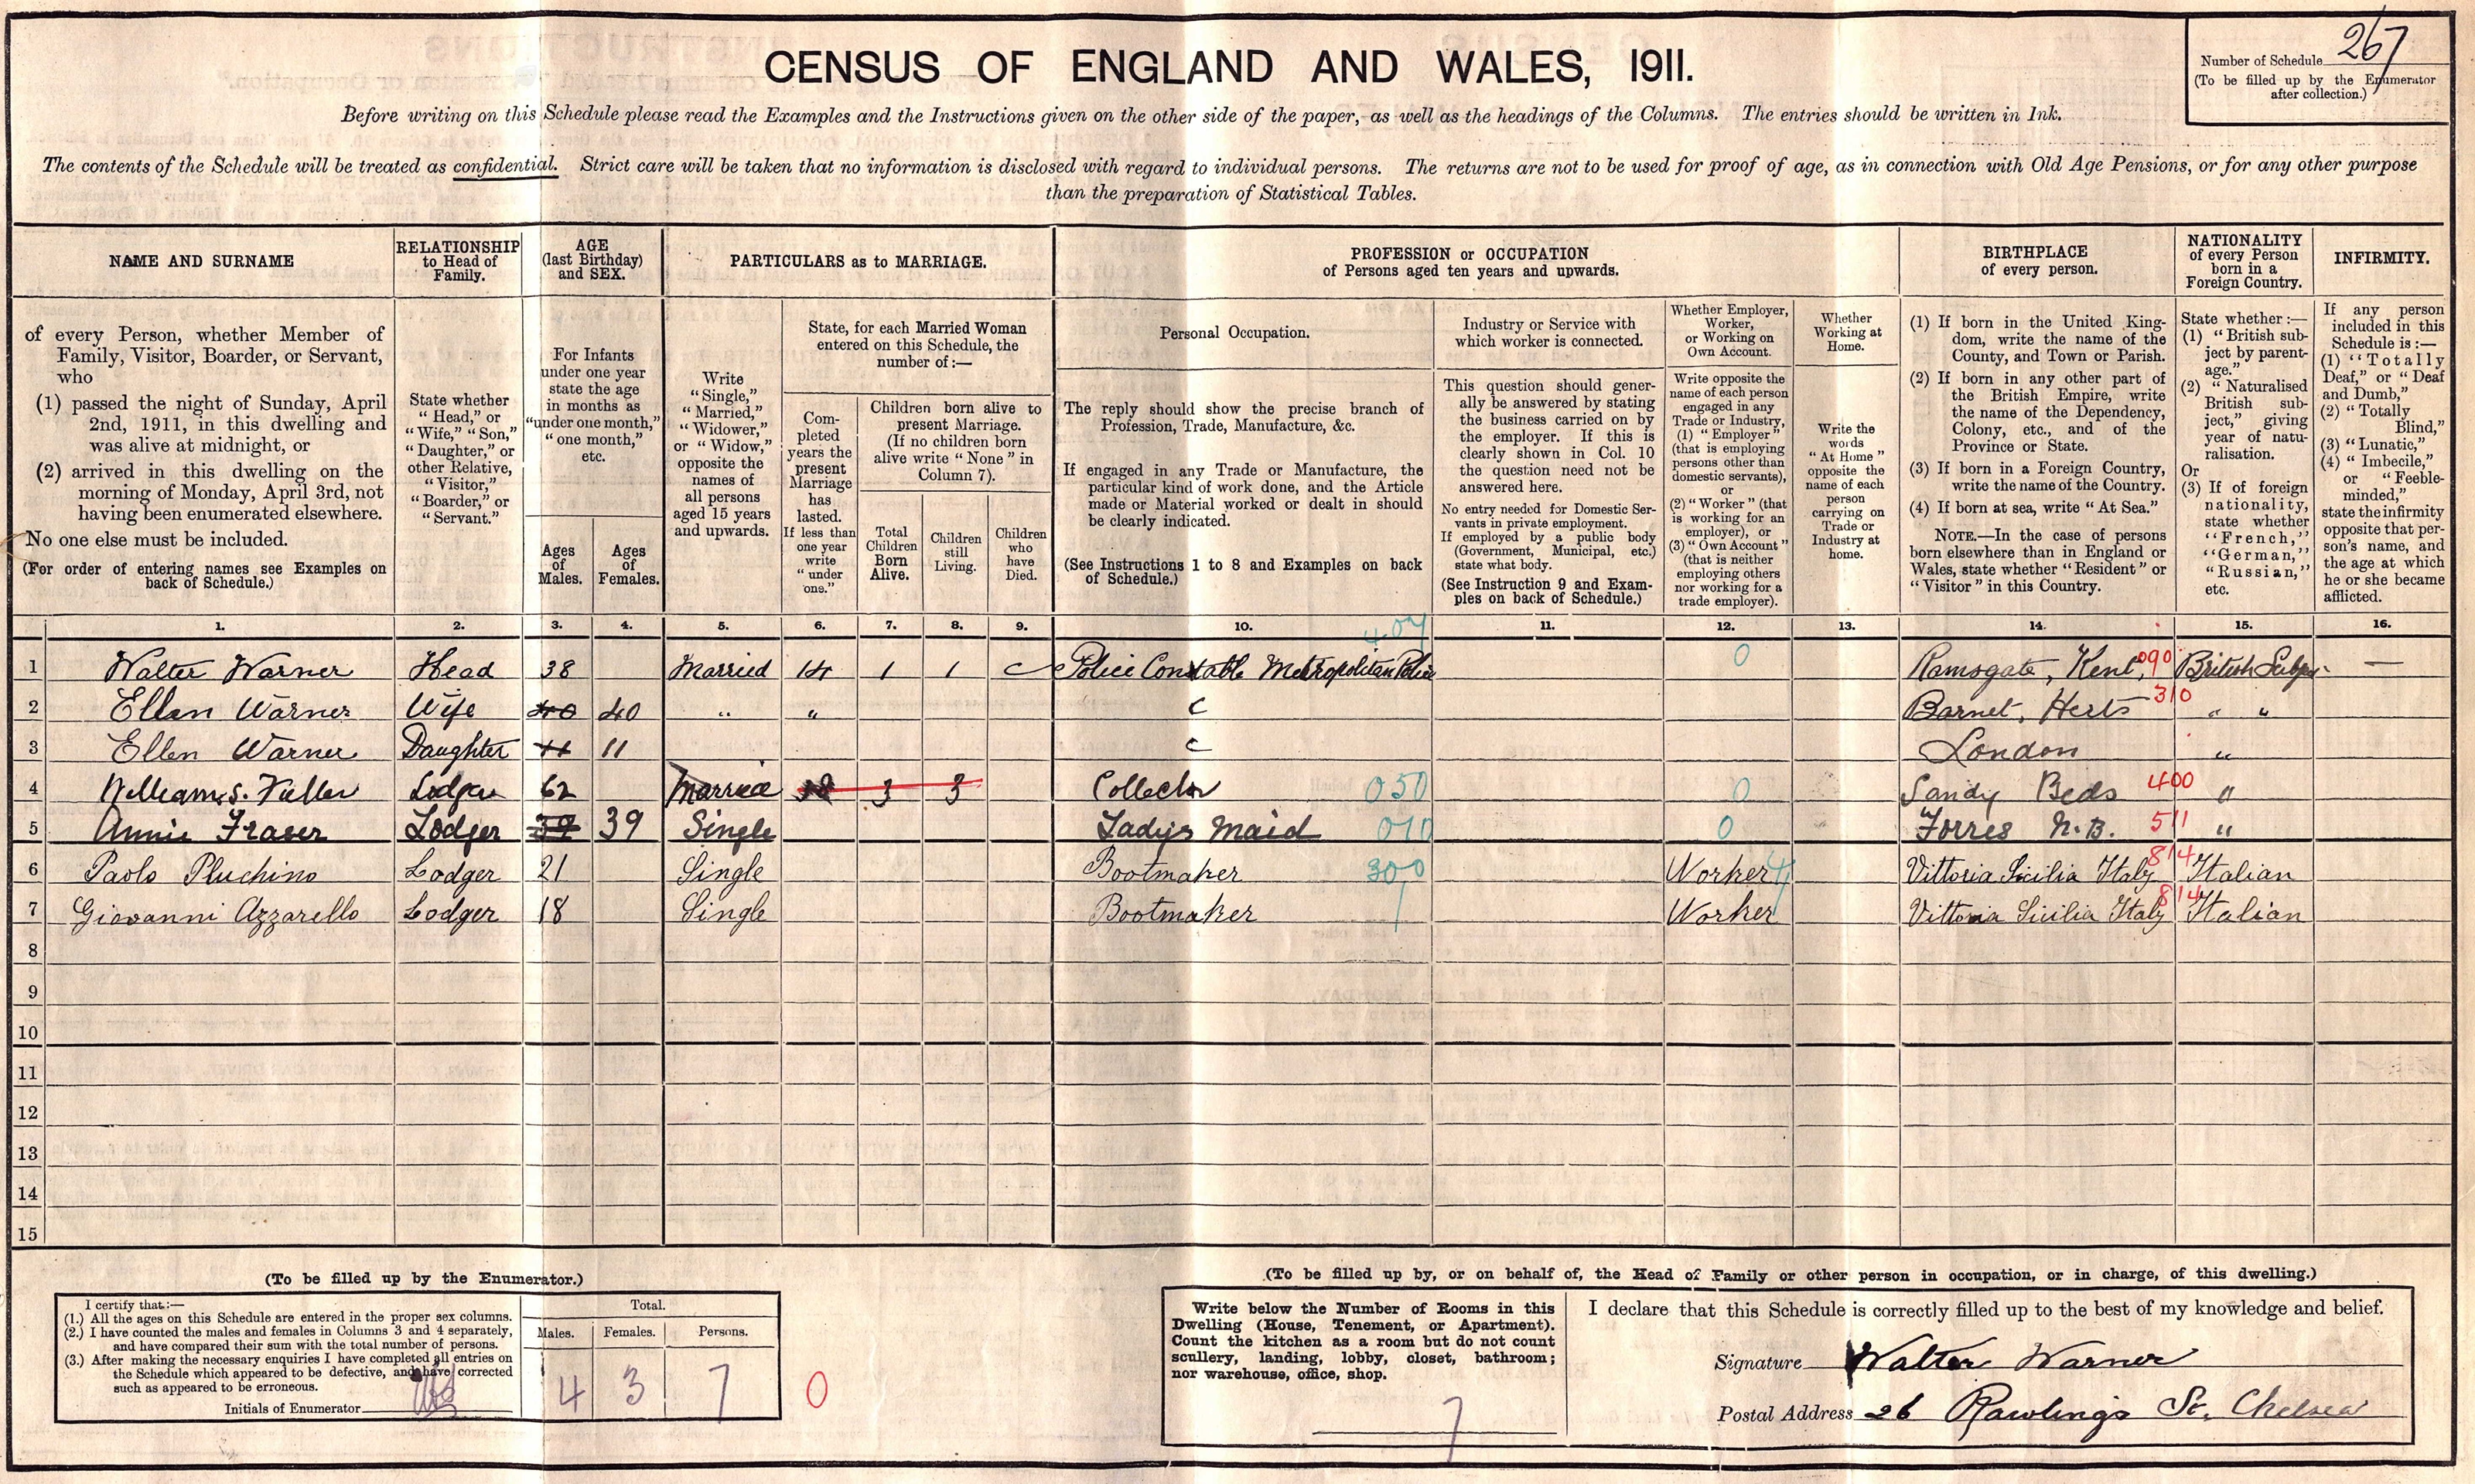 CENSUS OF ENGLAND AND WALES, 1911.
Number of Schedule 267
(To be filled up by the Enumerator
after collection.)
Before writing on this Schedule please read the Examples and the Instructions given on the other side of the paper, as well as the headings of the Columns. The entries should be written in Ink.
The contents of the Schedule will be treated as confidential. Strict care will be taken that no information is disclosed with regard to individual persons. The returns are not to be used for proof of age, as in connection with Old Age Pensions, or for any other purpose
than the preparation of Statistical Tables.
NAME AND SURNAME
of every Person, whether Member of
Family, Visitor, Boarder, or Servant,
who
(1) passed the night of Sunday, April
2nd, 1911, in this dwelling and
was alive at midnight, or
(2) arrived in this dwelling on the
morning of Monday, April 3rd, not
having been enumerated elsewhere.
No one else must be included.
(For order of entering names see Examples on
back of Schedule.)
RELATIONSHIP
to Head of
Family.
State whether
"Head," or
"Wife," "Son,"
"Daughter," or
other Relative,
"Visitor,"
"Boarder," or
"Servant."
AGE
(last Birthday)
and SEX.
For Infants
under one year
state the age
in months as
"under one month,"
"one month,"
etc.
Ages
of
Males.
Ages
of
Females.
PARTICULARS as to MARRIAGE.
Write
"Single,"
"Married,"
"Widower,"
or "Widow,"
opposite the
names of
all persons
aged 15 years
and upwards.
State, for each Married Woman
entered on this Schedule, the
number of:—
Com-
pleted
years the
present
Marriage
has
lasted.
If less than
one year
write
"under
one."
Children born alive to
present Marriage.
(If no children born
alive write "None" in
Column 7).
Total
Children
Born
Alive.
Children
still
Living.
Children
who
have
Died.
PROFESSION or OCCUPATION
of Persons aged ten years and upwards.
Personal Occupation.
The reply should show the precise branch of
Profession, Trade, Manufacture, &c.
If engaged in any Trade or Manufacture, the
particular kind of work done, and the Article
made or Material worked or dealt in should
be clearly indicated.
(See Instructions 1 to 8 and Examples on back
of Schedule.)
Industry or Service with
which worker is connected.
This question should gener-
ally be answered by stating
the business carried on by
the employer. If this is
clearly shown in Col. 10
the question need not be
answered here.
No entry needed for Domestic Ser-
vants in private employment.
If employed by a public body
(Government, Municipal, etc.)
state what body.
(See Instruction 9 and Exam-
ples on back of Schedule.)
Whether Employer,
Worker,
or Working on
Own Account.
Write opposite the
name of each person
engaged in any
Trade or Industry,
(1) "Employer"
(that is employing
persons other than
domestic servants),
or
(2) "Worker" (that
is working for an
employer), or
(3) "Own Account"
(that is neither
employing others
nor working for a
trade employer).
Whether
Working at
Home.
Write the
words
"At Home"
opposite the
name of each
person
carrying on
Trade or
Industry at
home.
BIRTHPLACE
of every person.
(1) If born in the United King-
dom, write the name of the
County, and Town or Parish.
(2) If born in any other part of
the British Empire, write
the name of the Dependency,
Colony, etc., and of the
Province or State.
(3) If born in a Foreign Country,
write the name of the Country.
(4) If born at sea, write "At Sea."
NOTE.—In the case of persons
born elsewhere than in England or
Wales, state whether "Resident" or
"Visitor" in this Country.
NATIONALITY
of every Person
born in a
Foreign Country.
State whether:—
(1) "British sub-
ject by parent-
age."
(2) "Naturalised
British sub-
ject," giving
year of natu-
ralisation.
Or
(3) If of foreign
nationality,
state whether
"French,"
"German,"
"Russian,"
etc.
INFIRMITY.
If any person
included in this
Schedule is:—
(1) "Totally
Deaf," or "Deaf
and Dumb,"
(2) "Totally
Blind,"
(3) "Lunatic,"
(4) "Imbecile,"
or "Feeble-
minded,"
state the infirmity
opposite that per-
son's name, and
the age at which
he or she became
afflicted.
1. 2. 3. 4. 5. 6. 7. 8. 9. 10. 11. 12. 13. 14. 15. 16.
1 Walter Warner Head 38 Married 14 1 1 Police Constable Metropolitan Police 0 Ramsgate, Kent, 090 British —
2 Ellen Warner Wife 40 40 " " Barnet, Herts 310 " "
3 Ellen Warner Daughter 11 11 London "
4 William S. Fuller Lodger 62 Married 38 3 3 Collector 050 0 Sandy Beds 400 "
5 Annie Fraser Lodger 39 39 Single Ladys Maid 010 0 Forres N.B. 511 "
6 Paolo Pluchino Lodger 21 Single Bootmaker 300 Worker 4 Vittoria Sicilia Italy 814 Italian
7 Giovanni Azzarello Lodger 18 Single Bootmaker Worker Vittoria Sicilia Italy 814 Italian
8
9
10
11
12
13
14
15
(To be filled up by the Enumerator.)
I certify that:—
(1.) All the ages on this Schedule are entered in the proper sex columns.
(2.) I have counted the males and females in Columns 3 and 4 separately,
and have compared their sum with the total number of persons.
(3.) After making the necessary enquiries I have completed all entries on
the Schedule which appeared to be defective, and have corrected
such as appeared to be erroneous.
Initials of Enumerator
Total.
Males. Females. Persons.
4 3 7 0
(To be filled up by, or on behalf of, the Head of Family or other person in occupation, or in charge, of this dwelling.)
Write below the Number of Rooms in this
Dwelling (House, Tenement, or Apartment).
Count the kitchen as a room but do not count
scullery, landing, lobby, closet, bathroom;
nor warehouse, office, shop.
7
I declare that this Schedule is correctly filled up to the best of my knowledge and belief.
Signature Walter Warner
Postal Address 26 Rawlings St. Chelsea